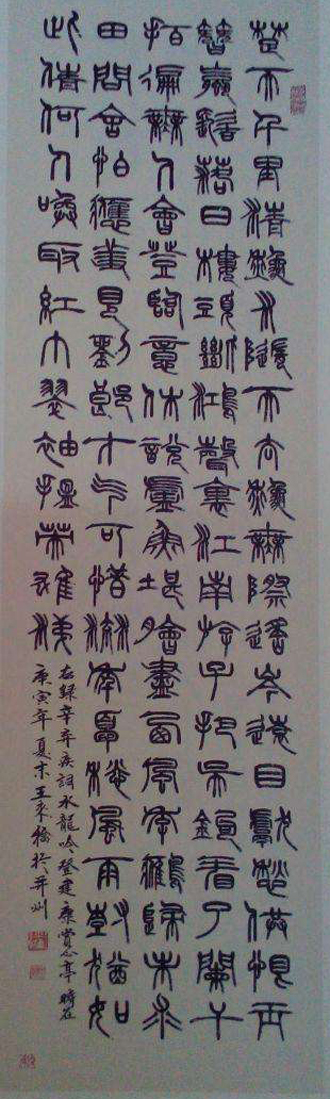 楚天千里清秋水隨天去秋無際遙岑遠目獻愁供恨玉
簪螺髻落日樓頭斷鴻聲裏江南游子把吳鉤看了闌干
拍徧無人會登臨意休說鱸魚堪膾盡西風季鷹歸未求
田問舍怕應羞見劉郎才气可惜流年憂愁風雨樹猶如
此倩何人喚取紅巾翠袖揾英雄淚
右錄辛弃疾詞水龍吟登建康賞心亭 時在
庚寅年夏末王來於并州